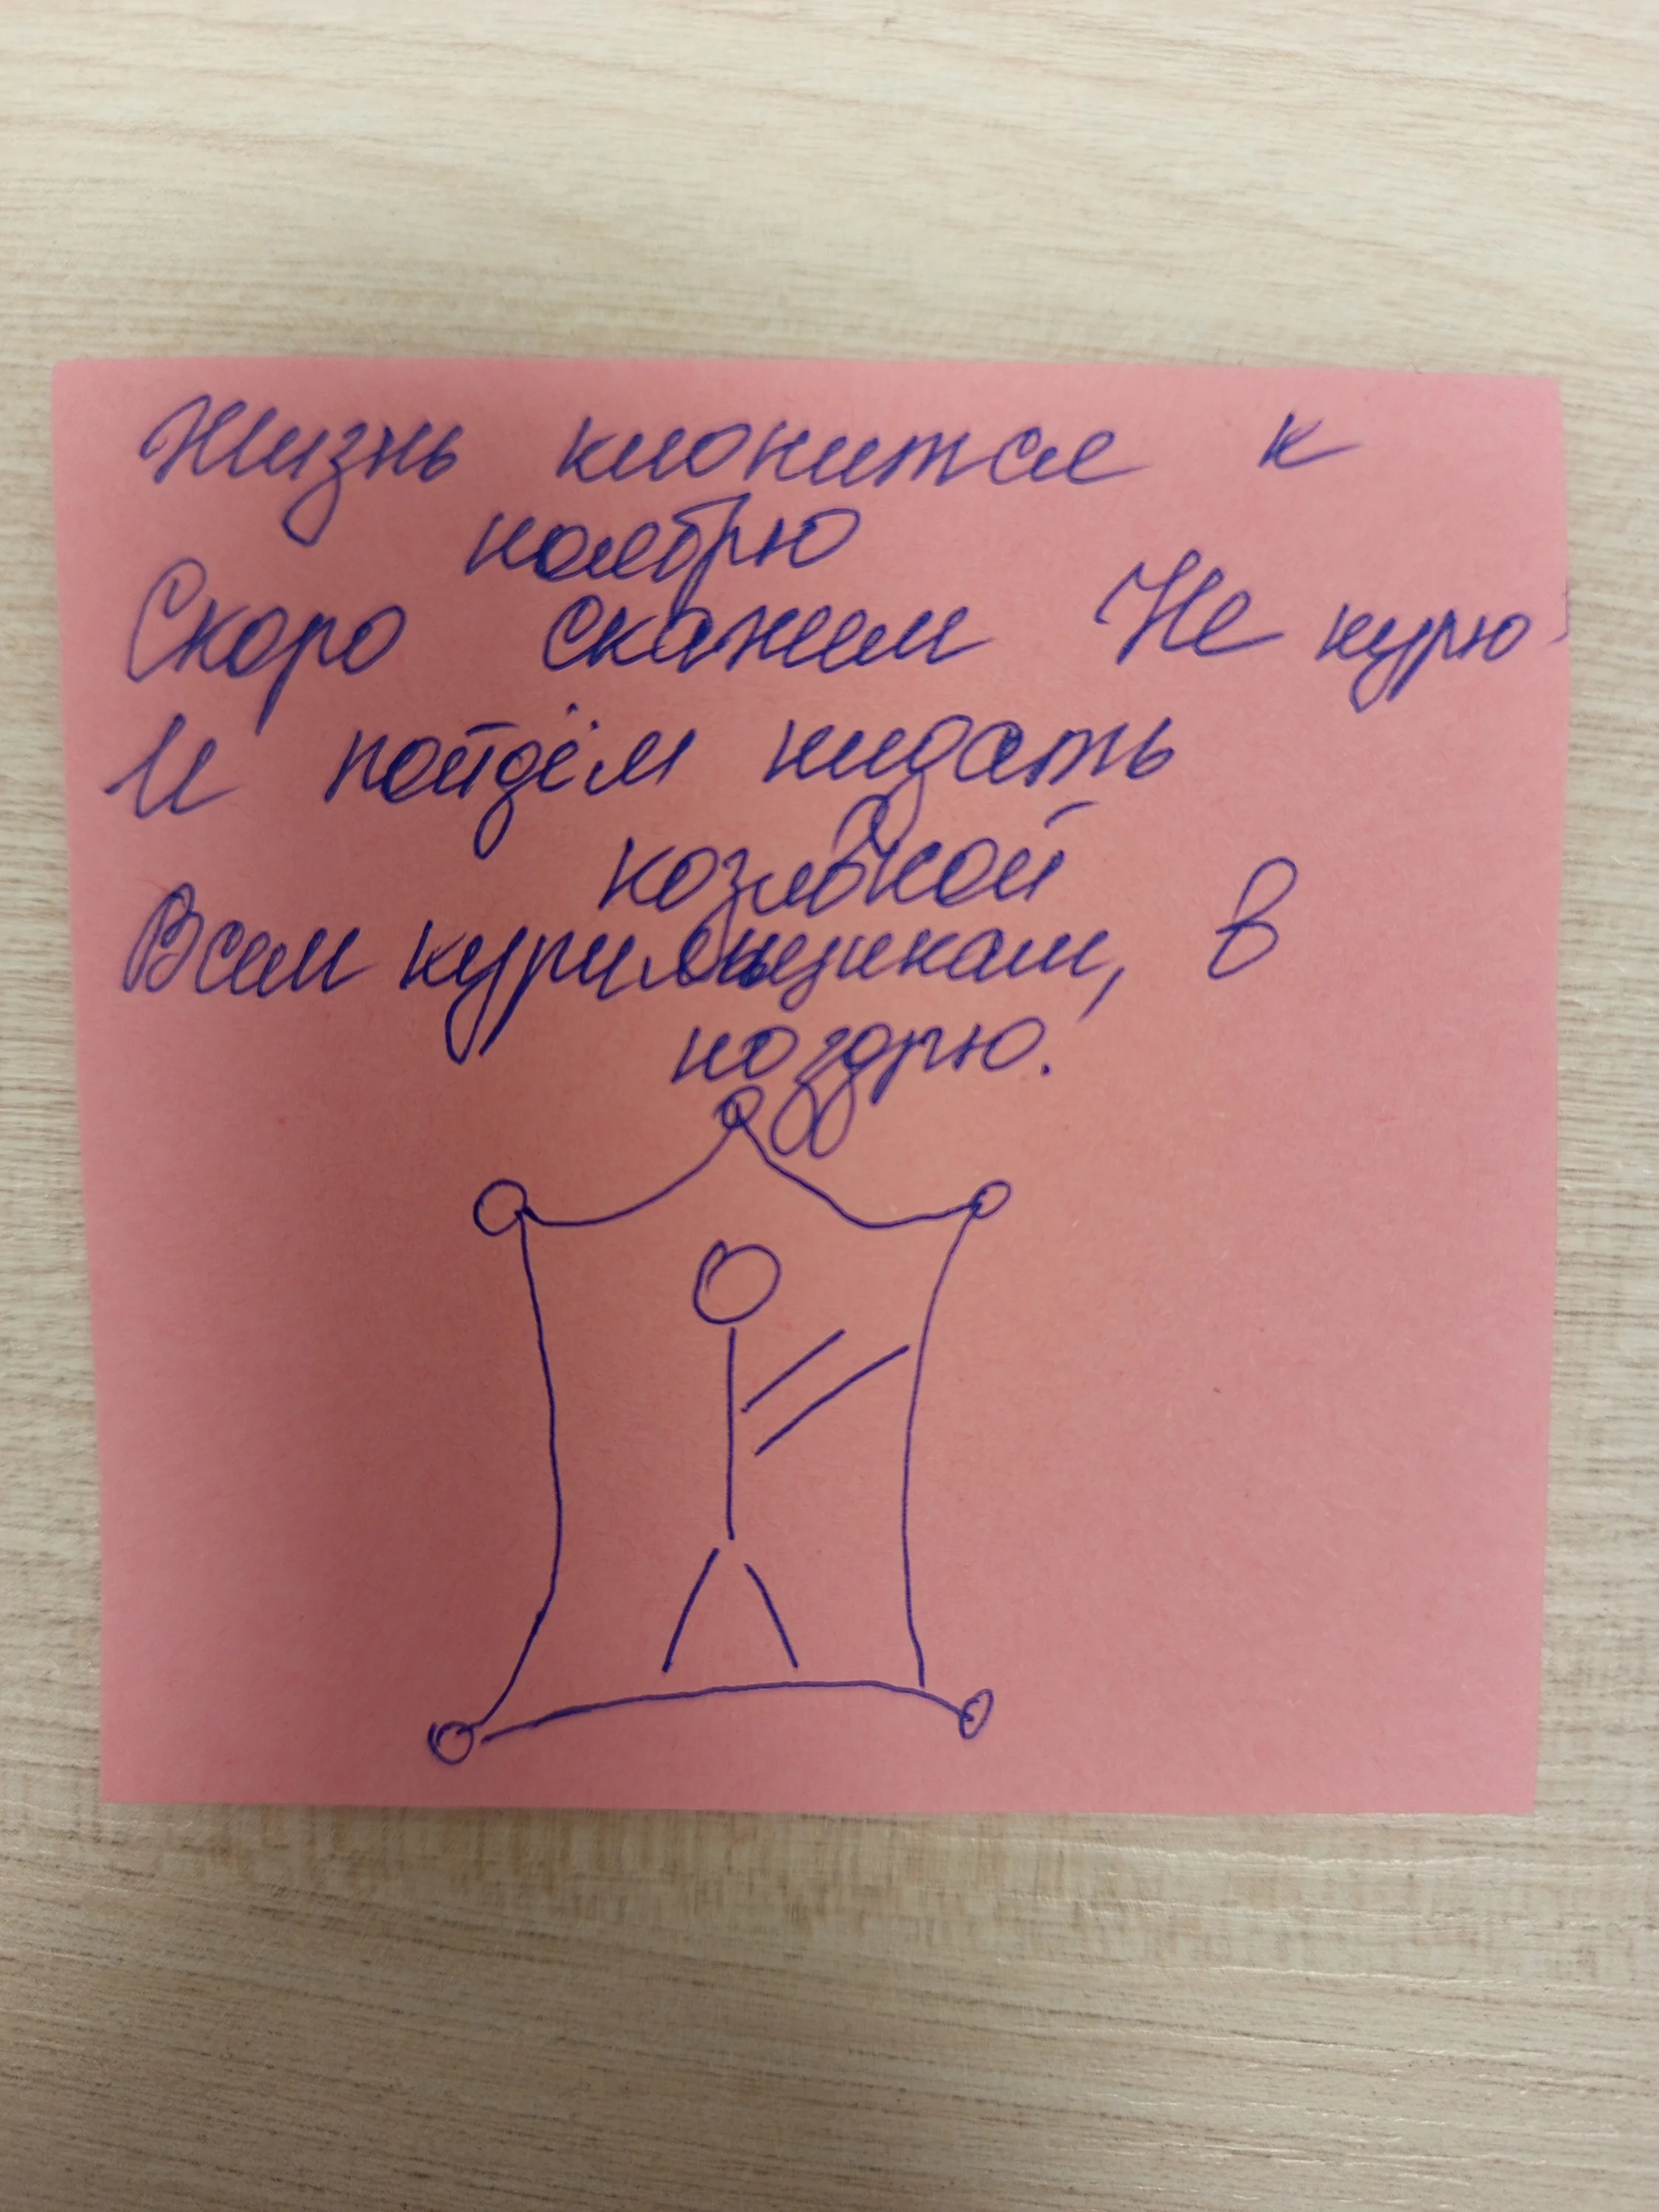 Жизнь клонится к
ноябрю
Скоро скажем Не курю
И пойдём кидать
козявкой
Всем курильщикам, в
ноздрю.